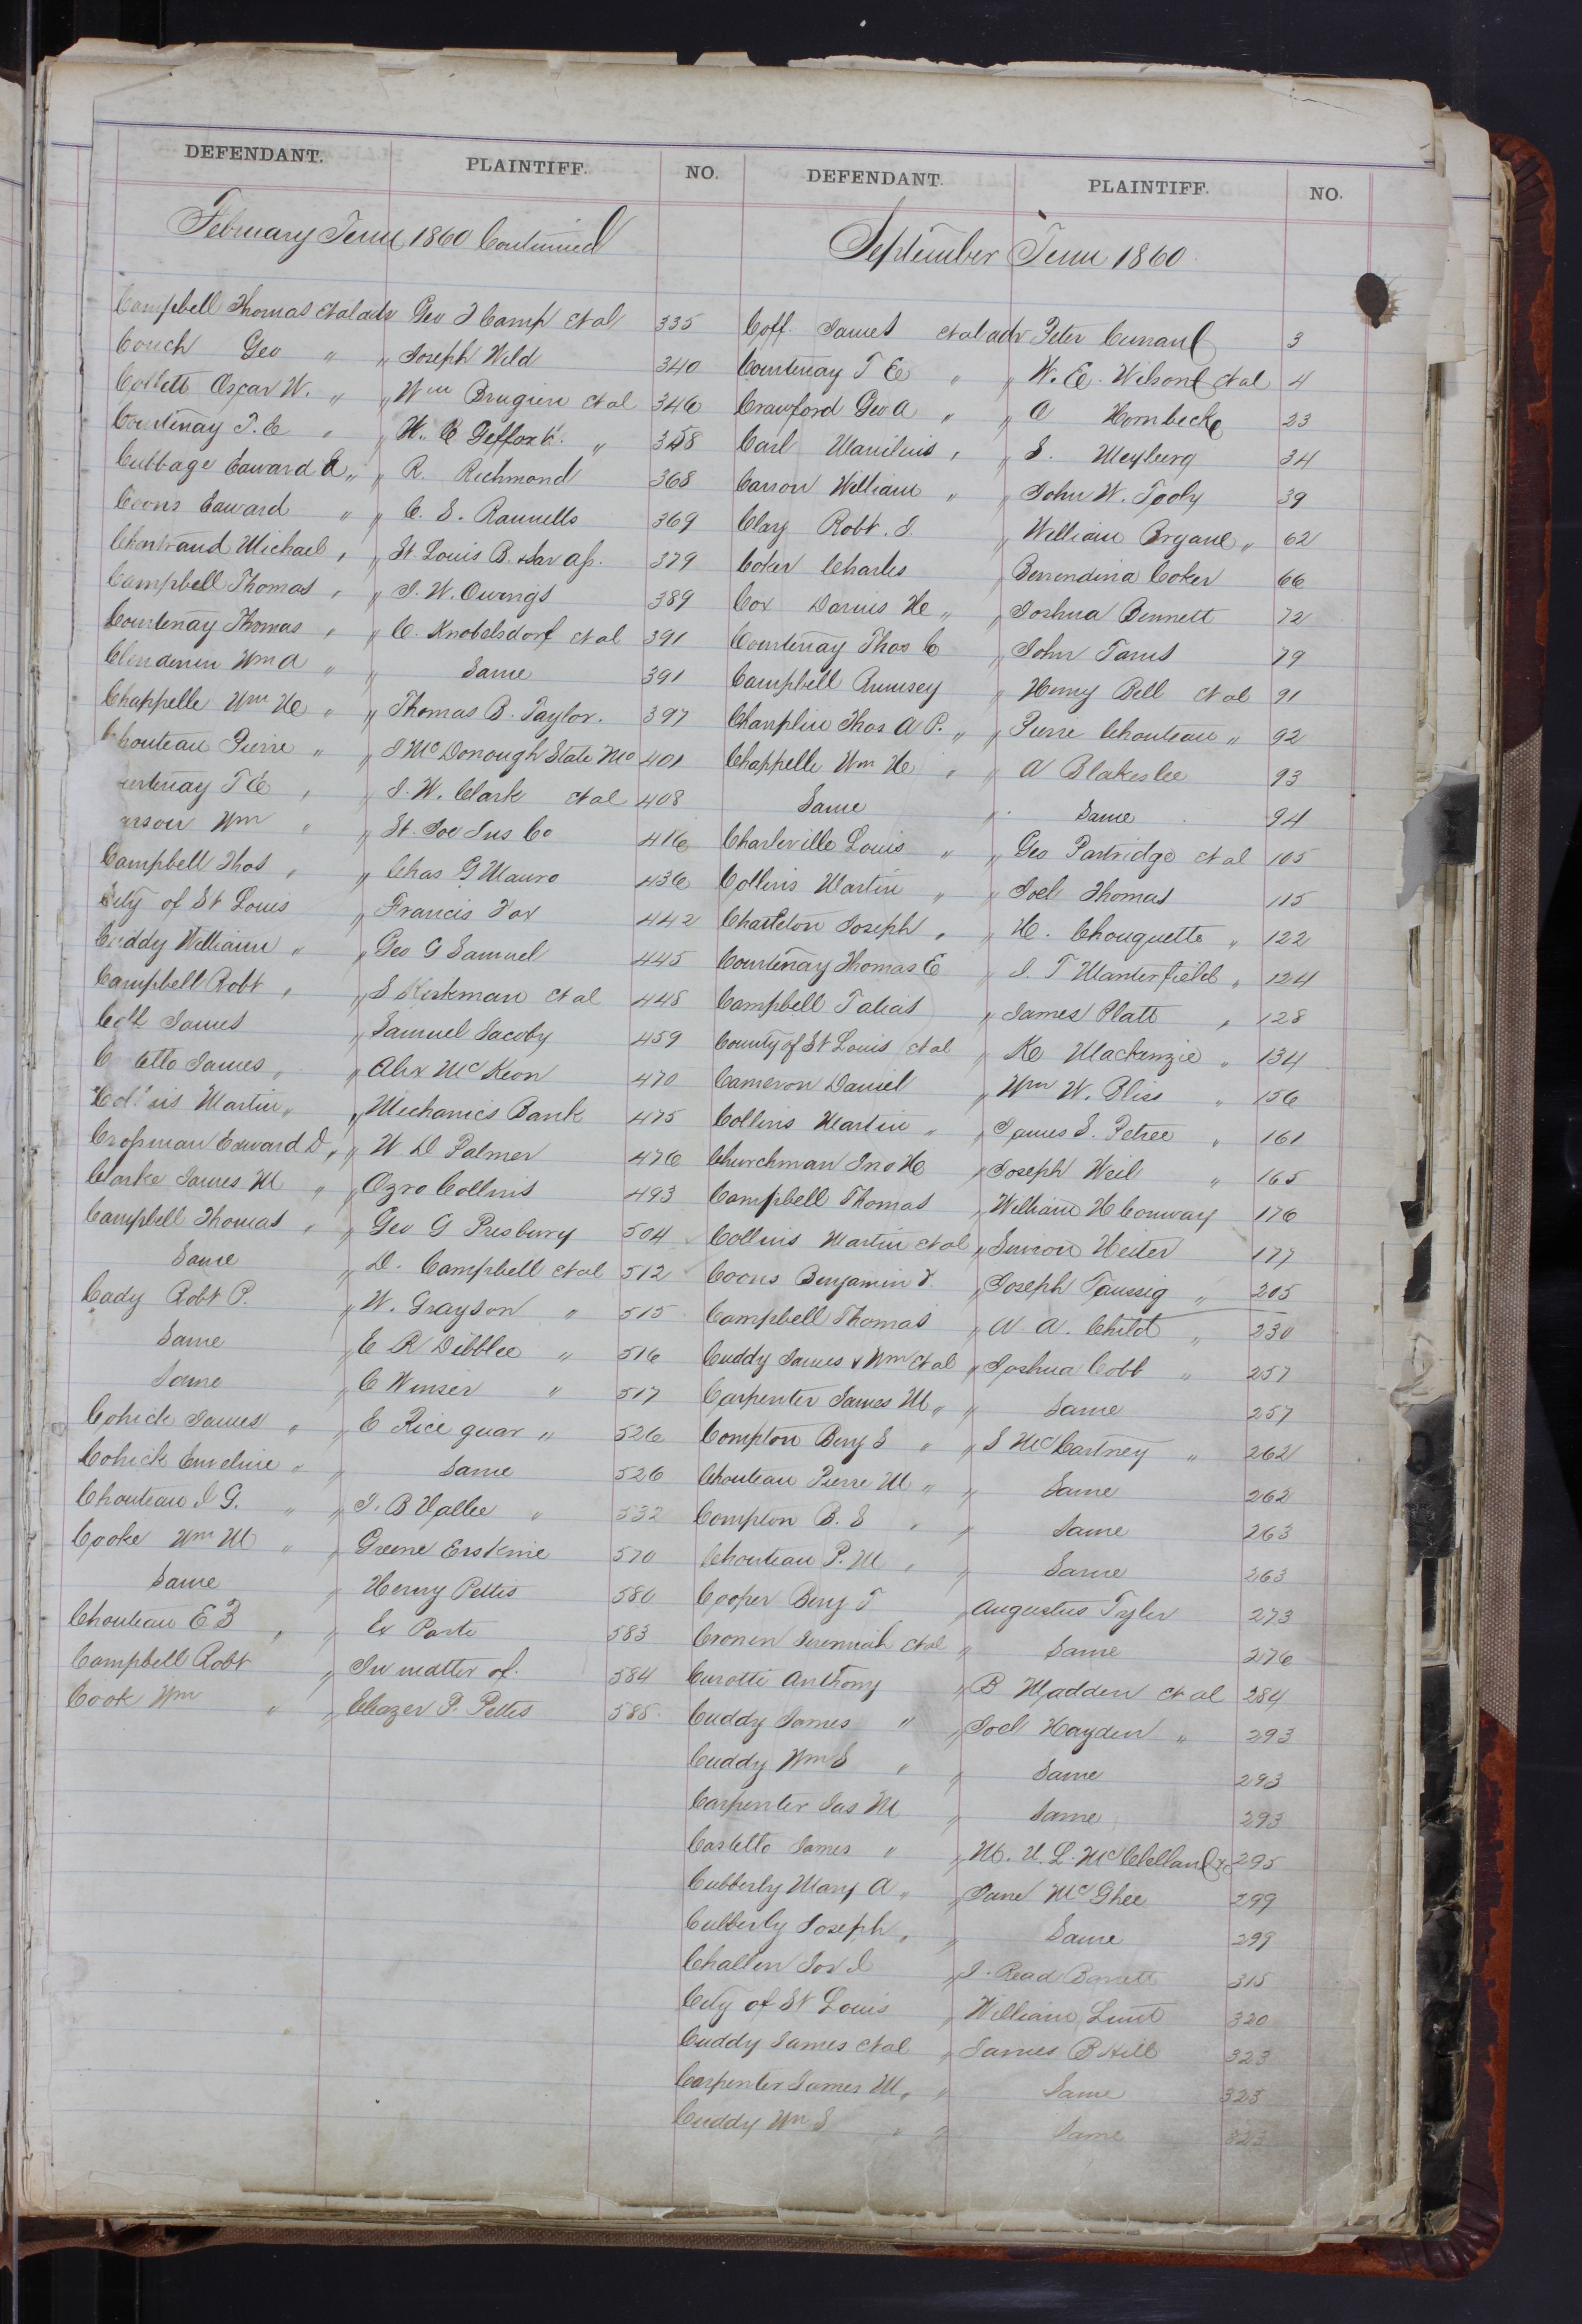 DEFENDANT. PLAINTIFF. NO.
February Term 1860 Continued
Campbell Thomas et al adv Geo T Camp et al 335
Couch Geo " " Joseph Weld 340
Collett Oscar W. " " Wm Brugiere et al 346
Courtenay T. C " " H. C " 358
Cubbage Edward " " R. Richmond 368
Coons Edward " " C. S. Rannells 369
Chartrand Michael " " St. Louis B. & Sav as. 379
Campbell Thomas " " J. W. Owings 389
Courtenay Thomas " " C. Knobelsdorf et al 391
Clendenin Wm A " " Same 391
Chappelle Wm H " " Thomas B. Taylor. 397
Chouteau Pierre " " J McDonough State Mo 401
urtenay T E " " J. W. Clark et al 408
arson Wm " " St. Joe Ins Co 416
Campbell Thos " " Chas G Mauro 436
City of St Louis " Francis Fox 442
Cuddy William " " Geo G Samuel 445
Campbell Robt " " S Kirkman et al 448
James " Samuel Jacoby 459
C etto James " " Alex McKeon 470
Collins Martin " " Mechanics Bank 475
Crossman Edward D " " W D Palmer 476
Clarke James M " " Ozro Collins 493
Campbell Thomas " " Geo G Presbury 504
Same " D. Campbell et al 512
Cady Robt P. " W. Grayson " 515
Same " E R Dibblee " 516
Same " C Winser " 517
Cohick James " " E Rice guar " 526
Cohick Emeline " " Same 526
Chouteau J G. " " J. B Vallee " 532
Cooke Wm M " " Greene Erskine 570
Same " Henry Pettis 580
Chouteau E B " " Ex Parte 583
Campbell Robt " In matter of. 584
Cook Wm " " Eleazer P. Pettes 588
DEFENDANT. PLAINTIFF. NO.
September Term 1860.
Coff. James et al adv Peter Curran 3
Courtenay T E " " W. E. Wilson et al 4
Crawford Geo A " " A Hornbeck 23
Carl Manilius " " S. Meyberg 34
Carson William " " John W. Tooly 39
Clay Robt. J. " William Bryan " 62
Coker Charles " Berrendina Coker 66
Cox Darius H " " Joshua Bennett 72
Courtenay Thos C " John Tams 79
Campbell Rumsey " Henry Bell et al 91
Champlin Thos A P. " " Pierre Chouteau " 92
Chappelle Wm H " " A Blakeslee 93
Same " Same 94
Charleville Louis " " Geo Partridge et al 105
Collins Martin " " Joel Thomas 115
Chattelon Joseph " " H. Chouquette " 122
Courtenay Thomas E " J. T Manterfield " 124
Campbell Tabias " James Platt " 128
County of St Louis et al " K Mackenzie " 134
Cameron Daniel " Wm W. Bliss " 156
Collins Martin " " James S. Petree " 161
Churchman Jno H " Joseph Weil " 165
Campbell Thomas " William H Conway 176
Collins Martin et al " Simion Hester 177
Coons Benjamin F. " Joseph Taussig " 205
Campbell Thomas " A A. Child " 230
Cuddy James & Wm et al " Joshua Cobb " 257
Carpenter James M " " Same 257
Compton Benj S " " S McCartney " 262
Chouteau Pierre M " " Same 262
Compton B. S " " Same 263
Chouteau P. M " " Same 263
Cooper Benj T " Augustus Tyler 273
Cronen Jeremiah et al " Same 276
Curotti Anthony " B Madden et al 284
Cuddy James " " Joel Hayden " 293
Cuddy Wm S " " Same 293
Carpenter Jas M " Same 293
Castello James " " M. U. L. McClelland &c 295
Cubberly Mary A " " Jane McGhee 299
Cubberly Joseph " " Same 299
Challen Jos J " J. Read Barrett 315
City of St Louis " William Lunt 320
Cuddy James et al " James B Hill 323
Carpenter James M " " Same 323
Cuddy Wm S " " Same 323